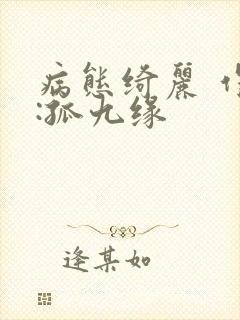 病態绮麗
:孤九缘
逢某如